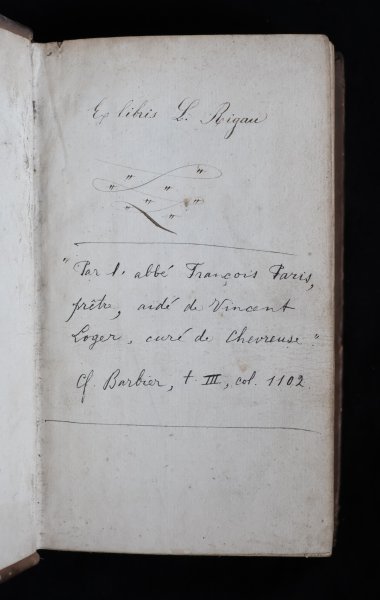 Ex libris L. Rigau
"Par l'abbé François Paris,
prêtre, aidé de Vincent
Loger, curé de Chevreuse"
Cf Barbier, t. III, col. 1102.